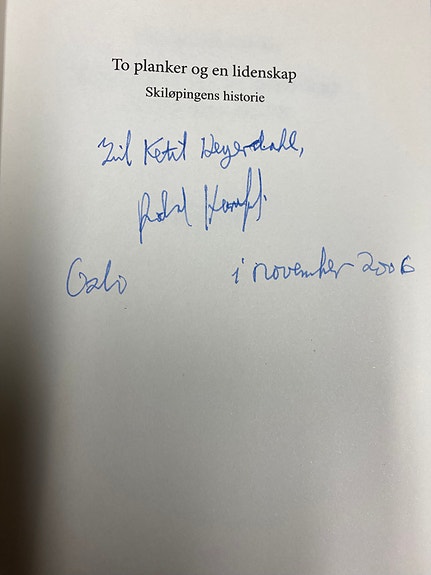 To planker og en lidenskap
Skiløpingens historie
Til Ketil Heyerdahl,
Oslo i november 2006